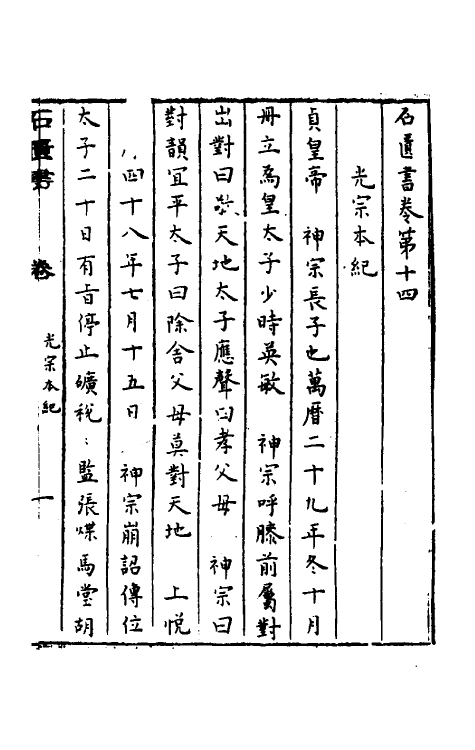 石匱書卷第十四
光宗本紀
貞皇帝 神宗長子也萬曆二十九年冬十月
冊立為皇太子少時英敏 神宗呼膝前屬對
出對曰敬天地太子應聲曰孝父母 神宗曰
對韻宜平太子曰除舍父母莫對天地 上悅
四十八年七月十五日 神宗崩詔傳位
太子二十日有旨停止礦稅〻監張燁馬堂胡
石匱書 卷 光宗本紀 一